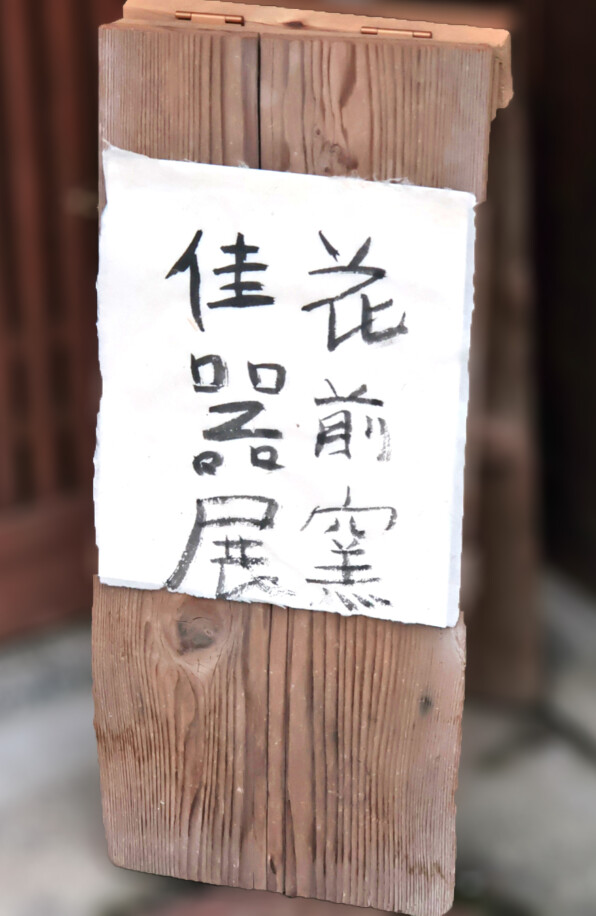 花前窯
佳器展